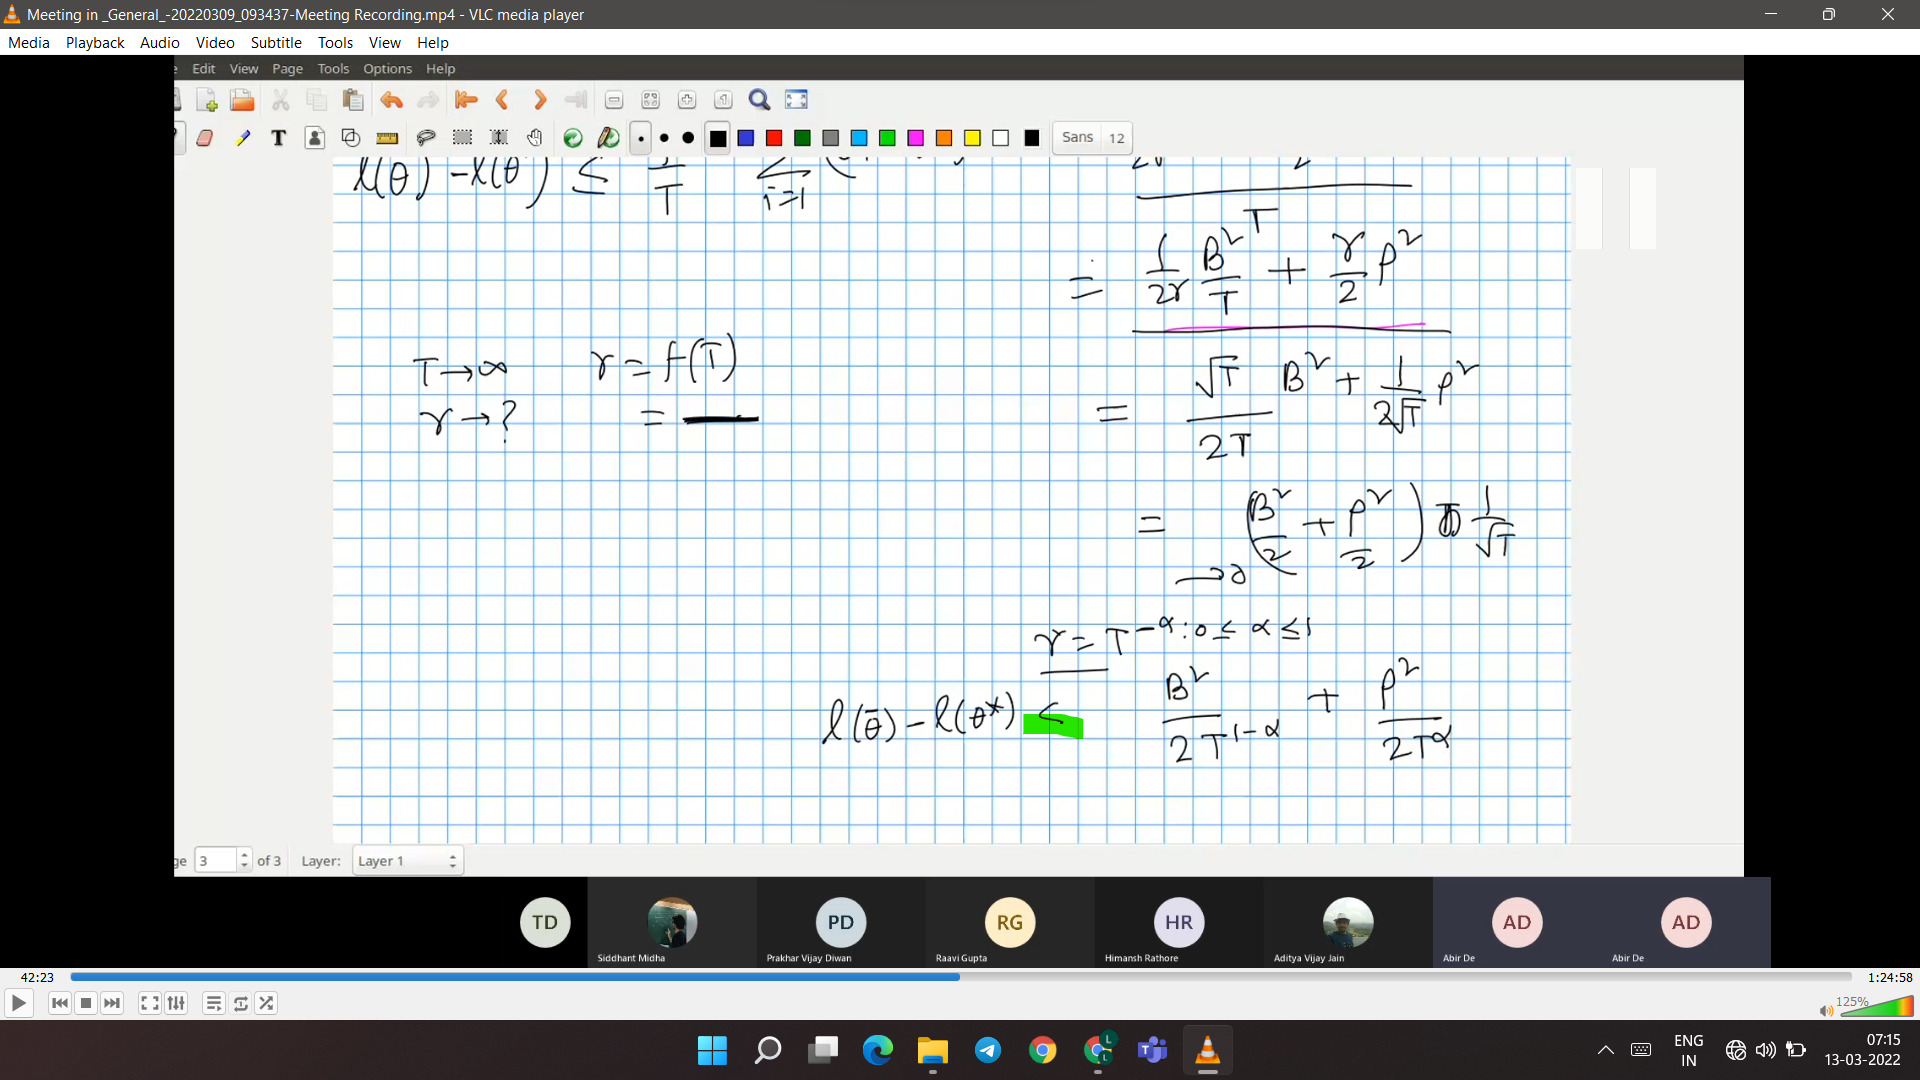 Meeting in _General_-20220309_093437-Meeting Recording.mp4 - VLC media player
Media Playback Audio Video Subtitle Tools View Help
e Edit View Page Tools Options Help
Sans 12
l(θ) - l(θ) ≤ 1/T Σ i=1
T
= 1/2γ B²/T + γ/2 ρ²
T → ∞ γ = f(T)
γ → ? =
= √T/2T B² + 1/2√T ρ²
= (B²/2 + ρ²/2) 1/√T
→ 0
γ = T^-α : 0 ≤ α ≤ 1
l(θ̄) - l(θ*) ≤ B²/2T^1-α + ρ²/2T^α
ge 3 of 3 Layer: Layer 1
TD PD RG HR AD AD
Siddhant Midha Prakhar Vijay Diwan Raavi Gupta Himansh Rathore Aditya Vijay Jain Abir De Abir De
42:23 1:24:58
125%
L L
ENG 07:15
IN 13-03-2022